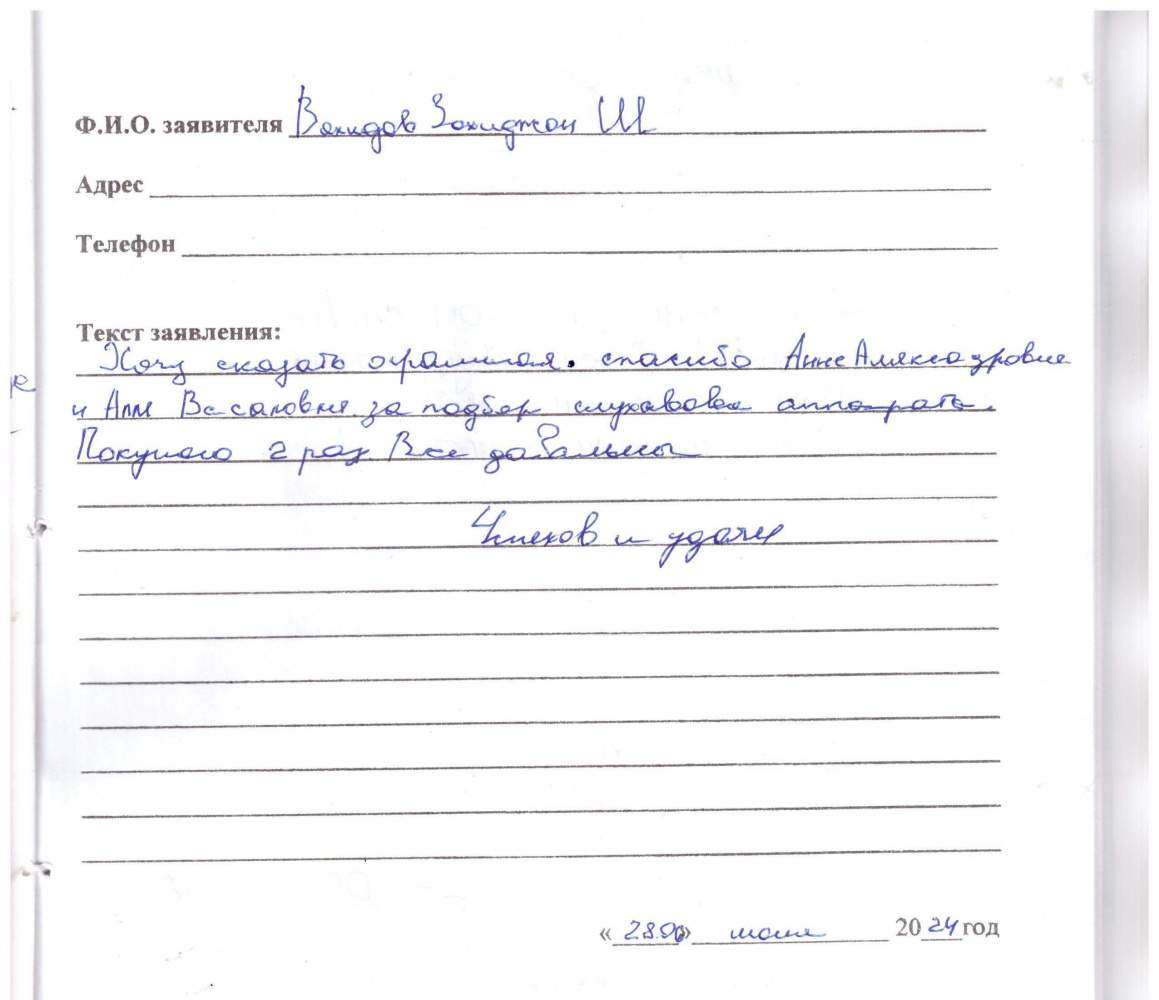 Ф.И.О. заявителя Вахидов Зохиджон Ш
Адрес
Телефон
Текст заявления:
Хочу сказать спасибо Анне Аляксадровне
и Алле за подбор слухавова аппарать.
Покупаю 2 раз Все давальны
Успехов и удачи
«28.06» 2024 год